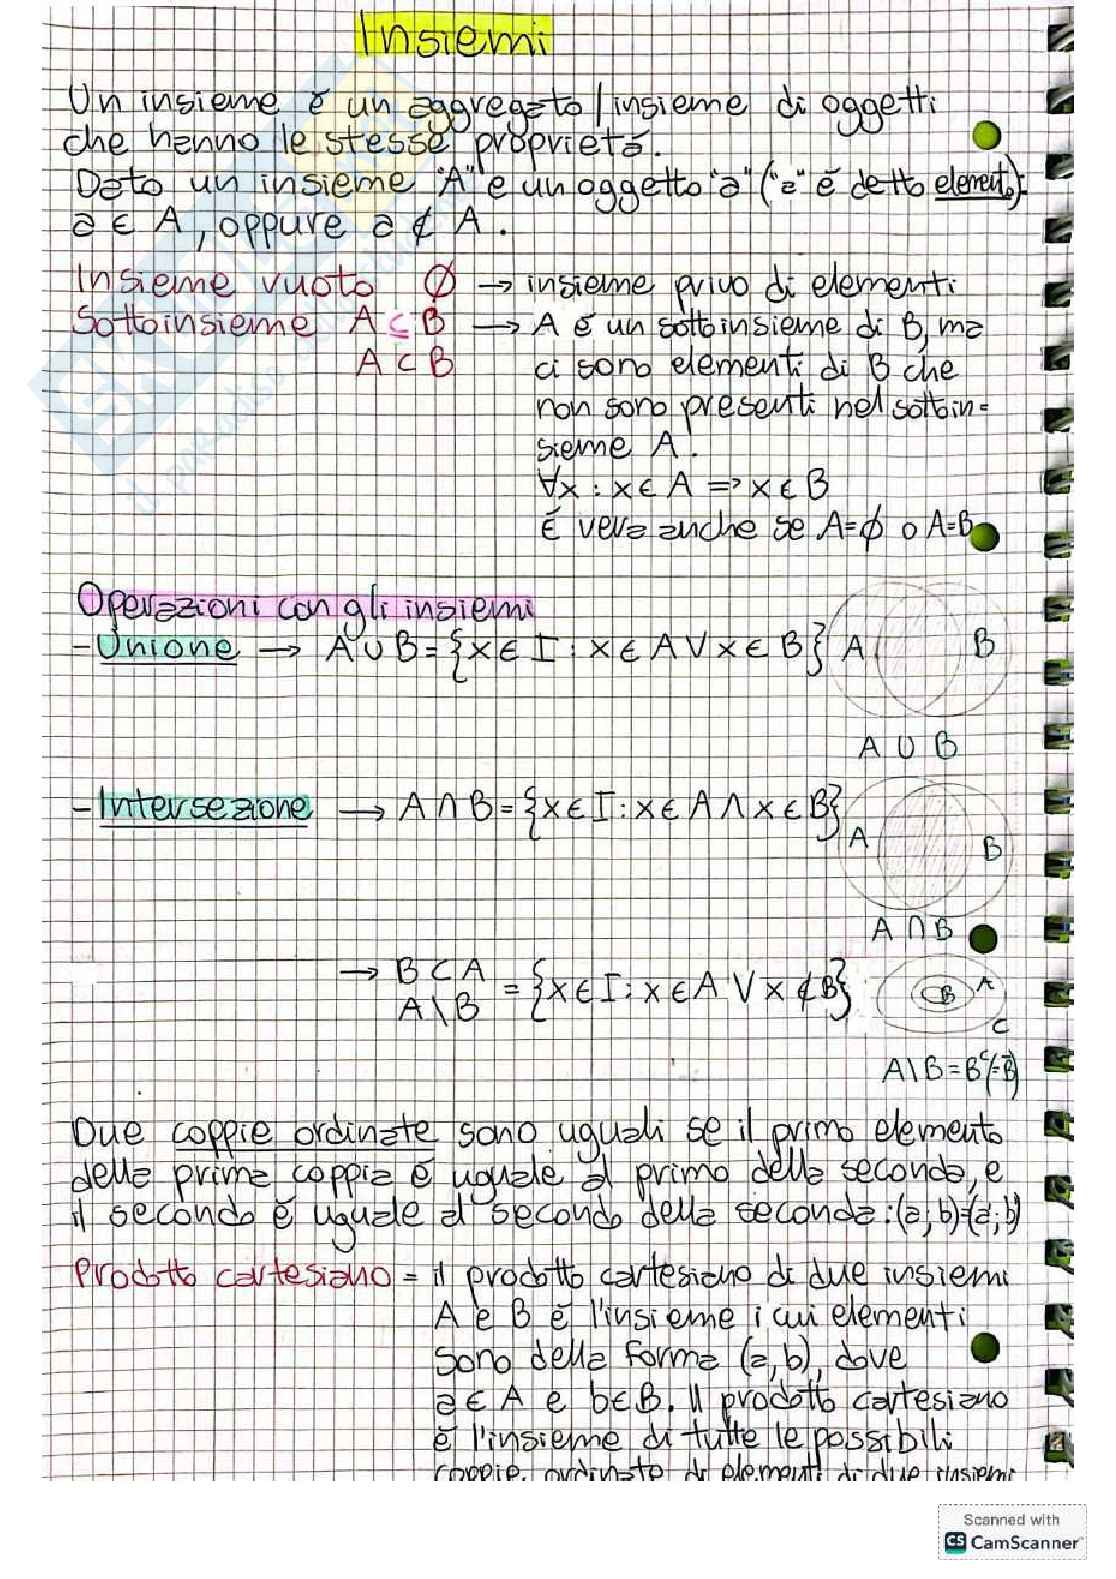 Insiemi
Un insieme è un aggregato/insieme di oggetti
che hanno le stesse proprietà.
Dato un insieme "A" e un oggetto "a" ("a" è detto elemento):
a ∈ A, oppure a ∉ A.
Insieme vuoto ∅ → insieme privo di elementi
Sottoinsieme A ⊆ B → A è un sottoinsieme di B, ma
A ⊂ B ci sono elementi di B che
non sono presenti nel sottoin-
sieme A.
∀x : x ∈ A => x ∈ B
È vera anche se A=∅ o A=B
Operazioni con gli insiemi
- Unione → A ∪ B = {x ∈ I : x ∈ A ∨ x ∈ B} A B
A ∪ B
- Intersezione → A ∩ B = {x ∈ I : x ∈ A ∧ x ∈ B}
A B
A ∩ B
→ B ⊂ A
A \ B = {x ∈ I : x ∈ A ∨ x ∉ B} B A
C
A \ B = Bᶜ(=B̅)
Due coppie ordinate sono uguali se il primo elemento
della prima coppia è uguale al primo della seconda, e
il secondo è uguale al secondo della seconda: (a; b)=(a; b)
Prodotto cartesiano = il prodotto cartesiano di due insiemi
A e B è l'insieme i cui elementi
sono della forma (a, b), dove
a ∈ A e b ∈ B. Il prodotto cartesiano
è l'insieme di tutte le possibili
coppie ordinate di elementi di due insiemi
Scanned with
CS CamScanner